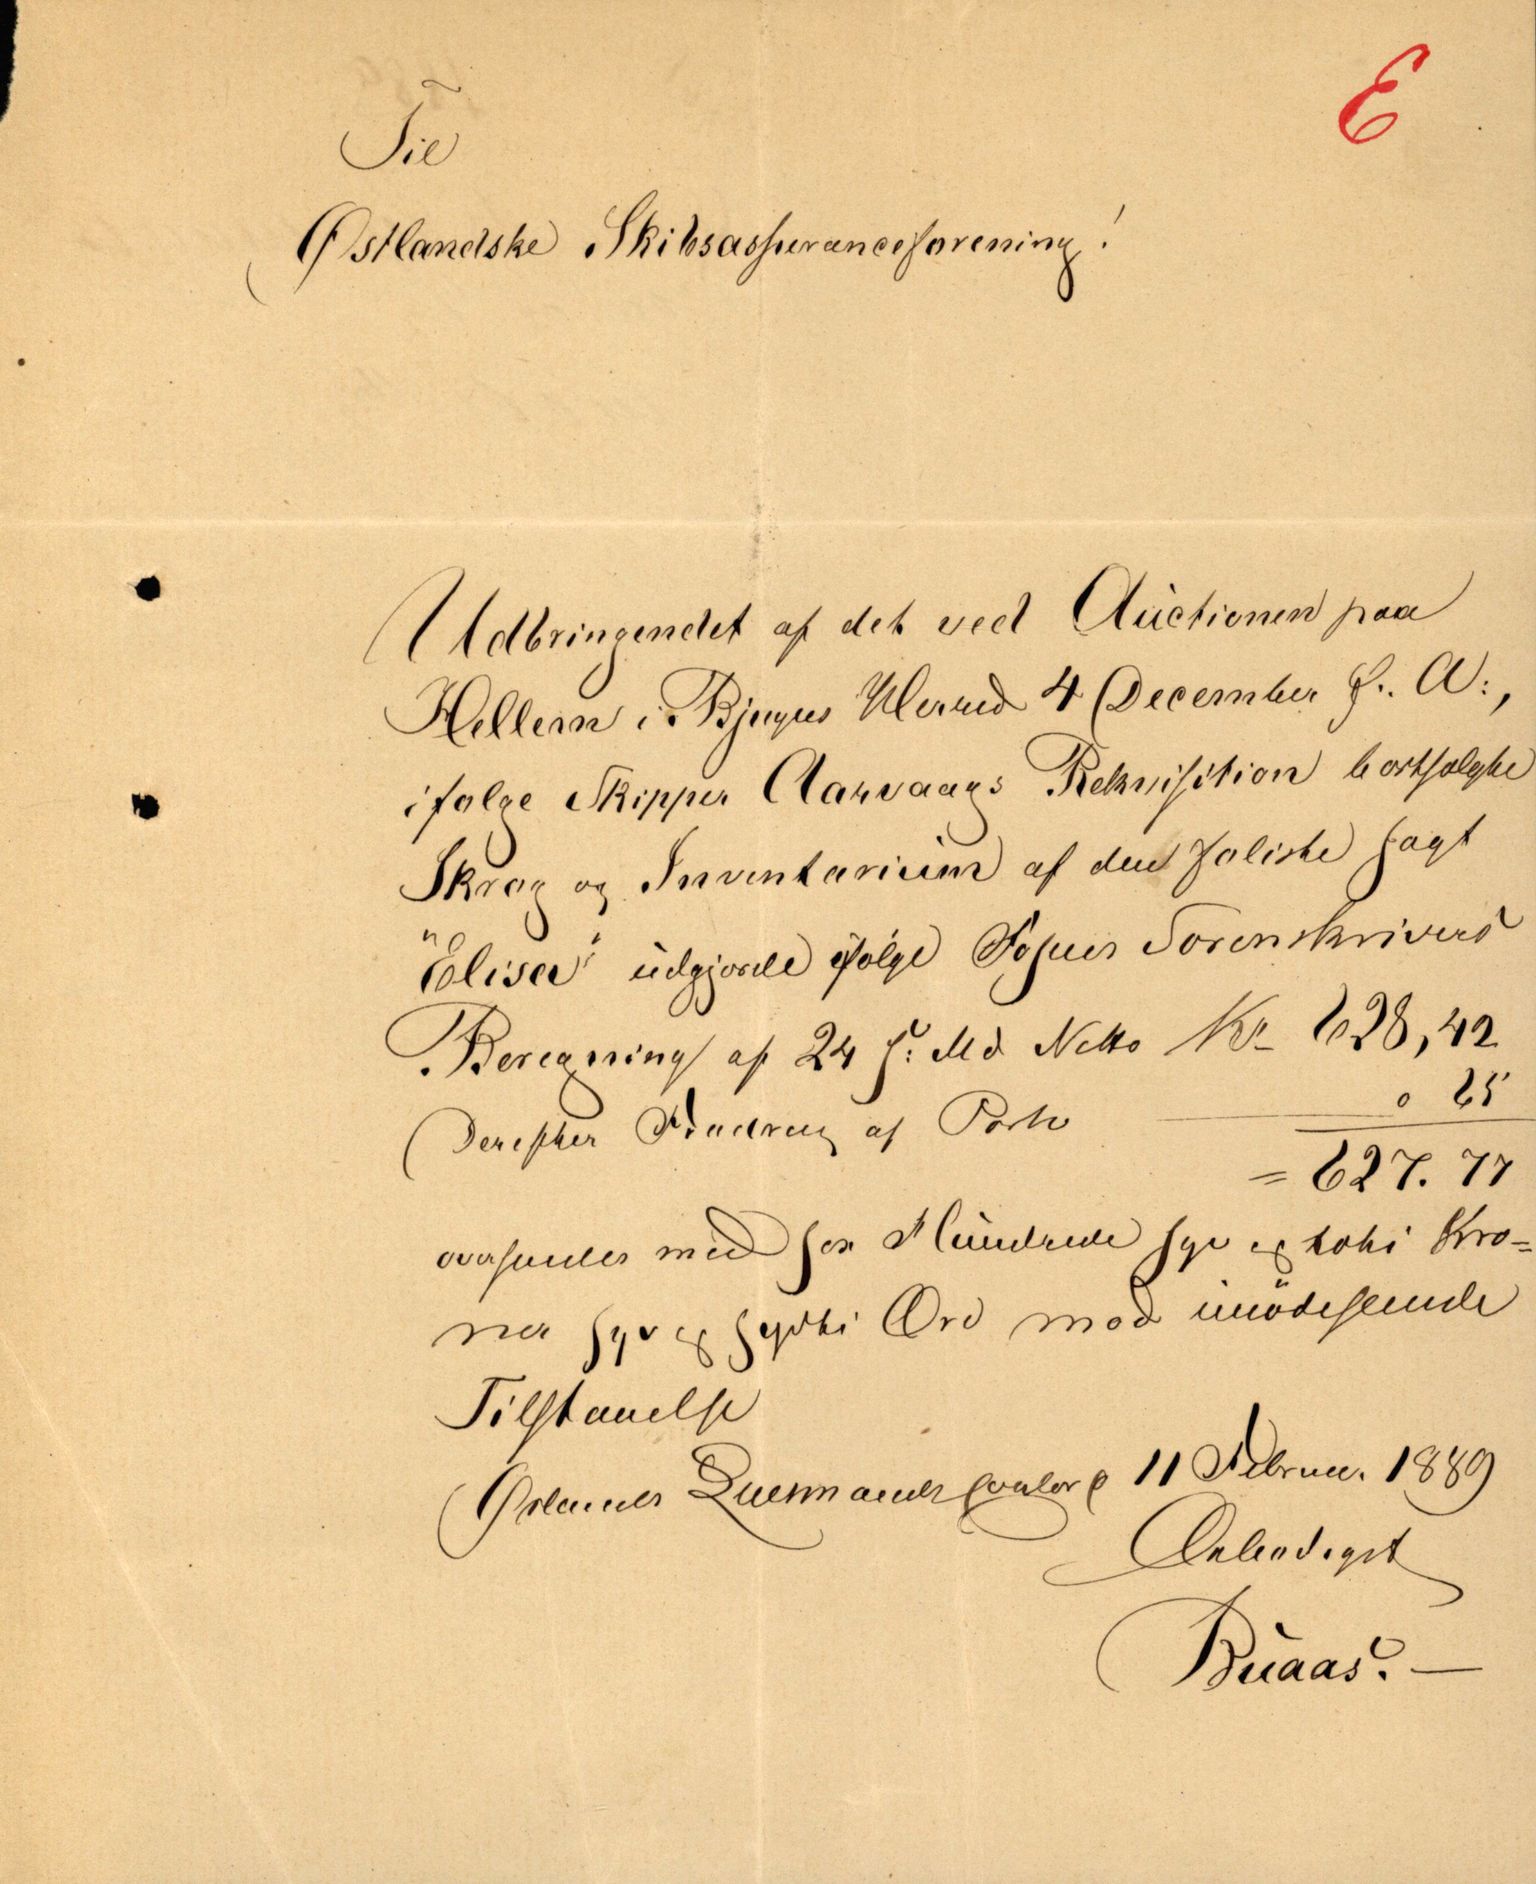 E
Til
Østlandske Skibsassuranceforening!
Udbringendet af det ved Auctionen paa
Hellem i Bjugns Herred 4 December f. A:,
ifølge Skipper Aarvaags Rekvisition bortsolgte
Skrog og Inventarium af den forliste Jagt
"Elise" udgjorde ifølge Fosens Sorenskrivers
Beregning af 24 f: Md Netto Kr 628,42
Derefter Fradrag af Porto 0 65
= 627.77
oversendes med sex Hundrede syv og tyve Kro=
ner syv og sytti Øre mod imødeseende
Tilstaaelse
Ørlands Lensmandskontor 11 Februar 1889
Ærbødigst
Buaas.—